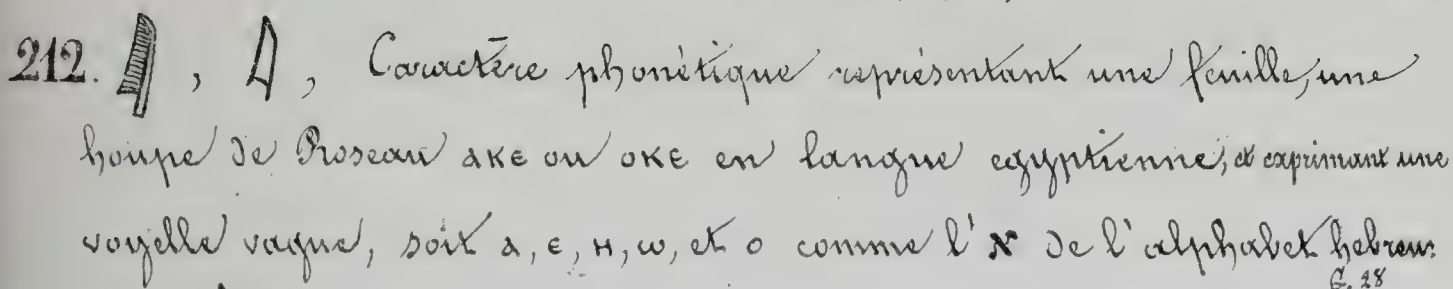 212. 𓇋, 𓇋, Caractère phonétique représentant une feuille, une
houpe de Roseau ⲁⲕⲉ ou ⲟⲕⲉ en langue egyptienne; et exprimant une
voyelle vague, soit ⲁ, ⲉ, ⲏ, ⲱ, et ⲟ comme l'א de l'alphabet hebreu:
G. 28